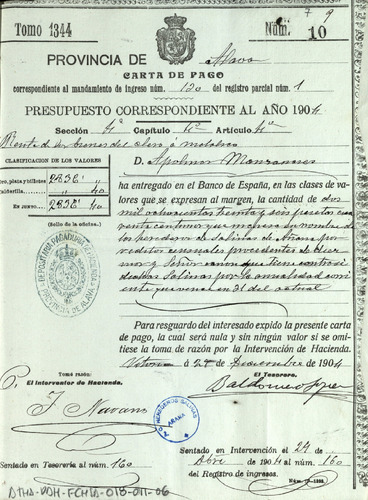 7 9
Tomo 1344
Núm. 10
PROVINCIA DE Alava
CARTA DE PAGO
correspondiente al mandamiento de ingreso núm. 120 del registro parcial núm. 1
PRESUPUESTO CORRESPONDIENTE AL AÑO 1904
Sección 4ª Capítulo 4º Artículo 4º
Renta de bienes del clero á metálico
CLASIFICACION DE LOS VALORES
Oro, plata y billetes 2836 "
Calderilla " 40
En junto 2836 40
(Sello de la oficina.)
D. Apolinar Manzanares
ha entregado en el Banco de España, en las clases de va-
lores que se expresan al margen, la cantidad de dos
mil ochocientas treinta y seis pesetas cua
renta centimos que ingresa en nombre de
los herederos de Salinas de Añana, por
reditos censales procedentes de diez
mos y Señor canon que tiene contra si
dichas Salinas por la anualidad corri
ente que vence en 31 del actual
DEPOSITARIA PAGADURIA DE HACIENDA
PROVINCIA DE ALAVA
Para resguardo del interesado expido la presente carta
de pago, la cual será nula y sin ningún valor si se omi-
tiese la toma de razón por la Intervención de Hacienda.
Vitoria á 24 de Diciembre de 1904
Tomé razón:
El Interventor de Hacienda,
El Tesorero,
P.
J. Navarro
Baldomero
HEREDEROS SALINAS
AÑANA
Sentado en Tesorería al núm. 160
Sentado en Intervención el 24 de
Dbre de 1904 al núm. 160
del Registro de ingresos.
DTHA-DAH-FCHIA-018-011-06